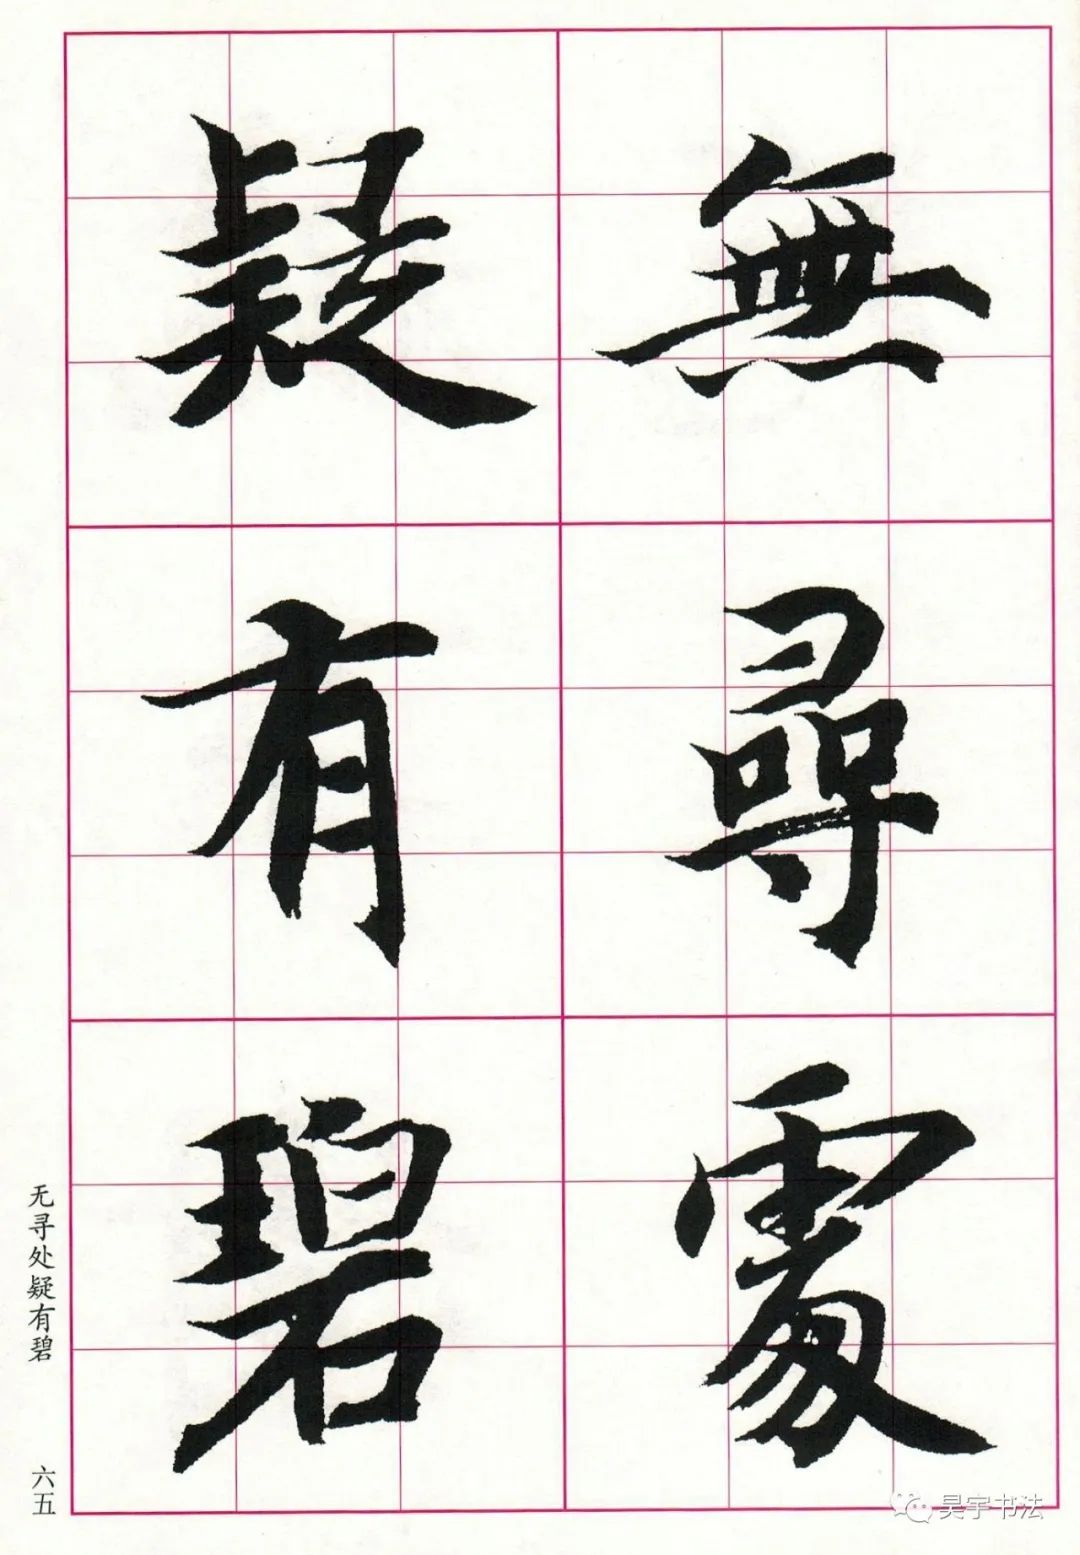 無尋處
疑有碧
无寻处疑有碧
六五
昊宇书法